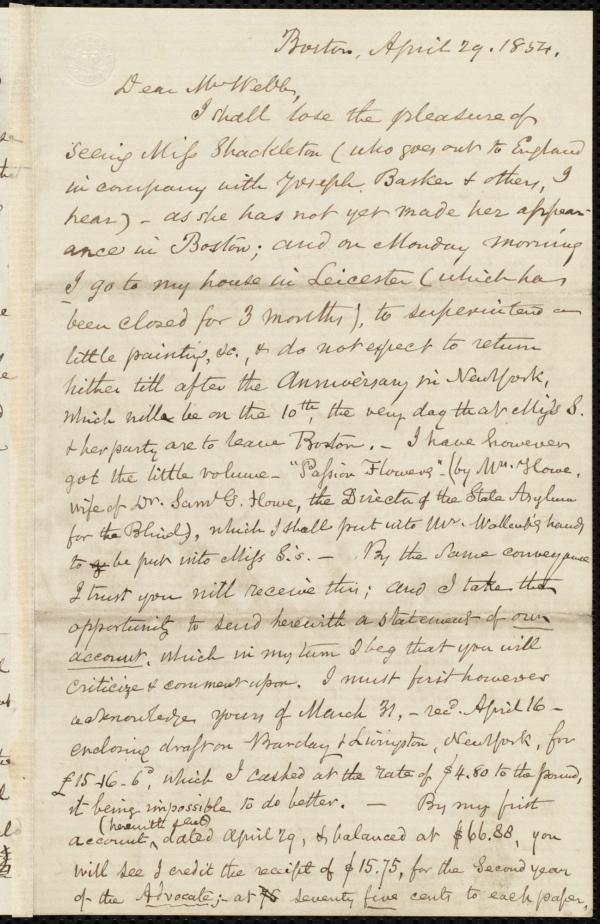 Boston, April 29. 1854.
Dear Mr Webb,
I shall lose the pleasure of
seeing Miss Shackleton (who goes out to England
in company with Joseph Barker & others, I
hear) - as she has not yet made her appear-
ance in Boston; and on Monday morning
I go to my house in Leicester (which has
been closed for 3 months), to superintend a
little painting, &c., & do not expect to return
hither till after the Anniversary in New York,
which will be on the 10th, the very day that Miss S.
& her party are to leave Boston. - I have however
got the little volume - "Passion Flowers" - (by Mrs. Howe,
wife of Dr. Saml G. Howe, the Director of the State Asylum
for the Blind), which I shall put into Mr. Wallcut's hands
to be put into Miss S.'s. - By the same conveyance
I trust you will receive this; and I take the
opportunity to send herewith a statement of our
account, which in my turn I beg that you will
criticize & comment upon. I must first however
acknowledge yours of March 31, - recd. April 16 -
enclosing draft on Barclay & Livingston, New York, for
£15-16-6d, which I cashed at the rate of $4.80 to the pound,
it being impossible to do better. - By my first
account, (herewith sent) dated April 29, & balanced at $66.88, you
will see I credit the receipt of $15.75, for the Second year
of the Advocate; - at 75 seventy five cents to each paper,